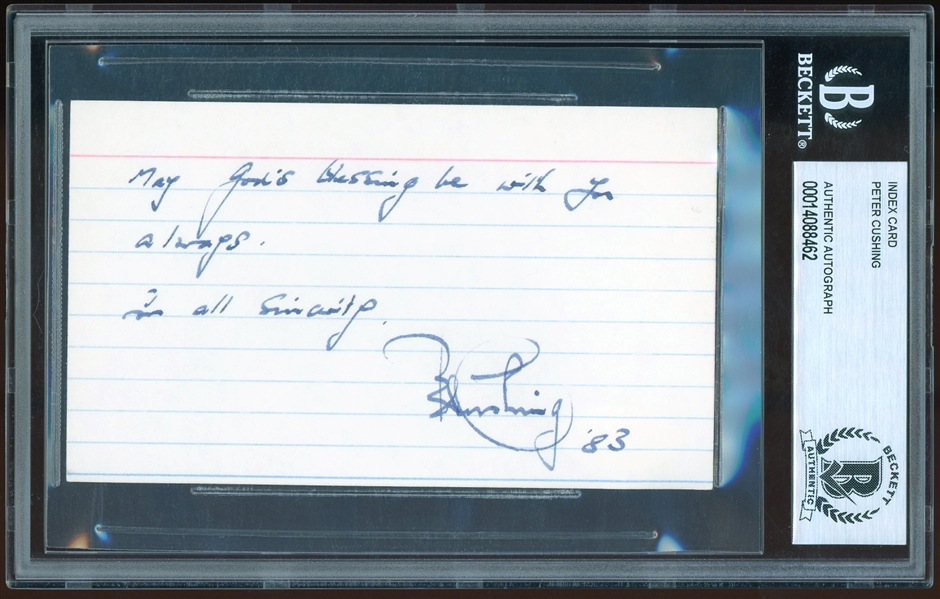 May God's blessing be with you
always.
in all sincerity.
Peter Cushing
'83
BECKETT®
B
INDEX CARD
PETER CUSHING
AUTHENTIC AUTOGRAPH
00014088462
BECKETT
B
AUTHENTIC